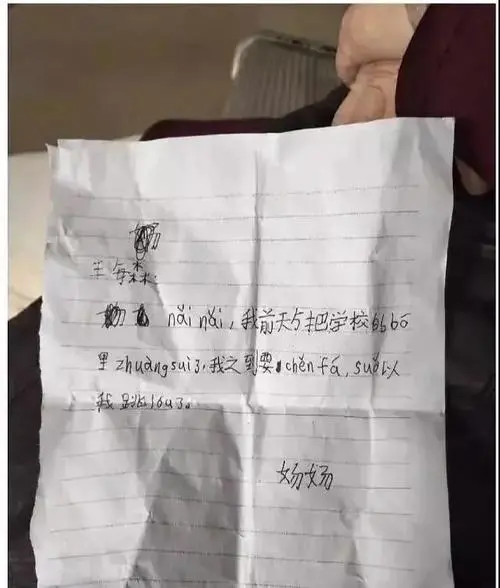 nǎi nǎi，我前天与把学校的bō
里zhuàng suì了，我之到要chěn fá，suǒ以
我跳lóu了。